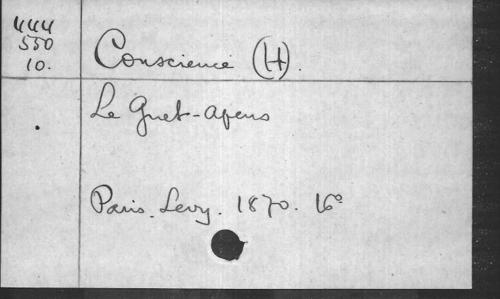 444
550
10.
Conscience (H).
Le Guet-apens
Paris. Levy. 1870. 16°